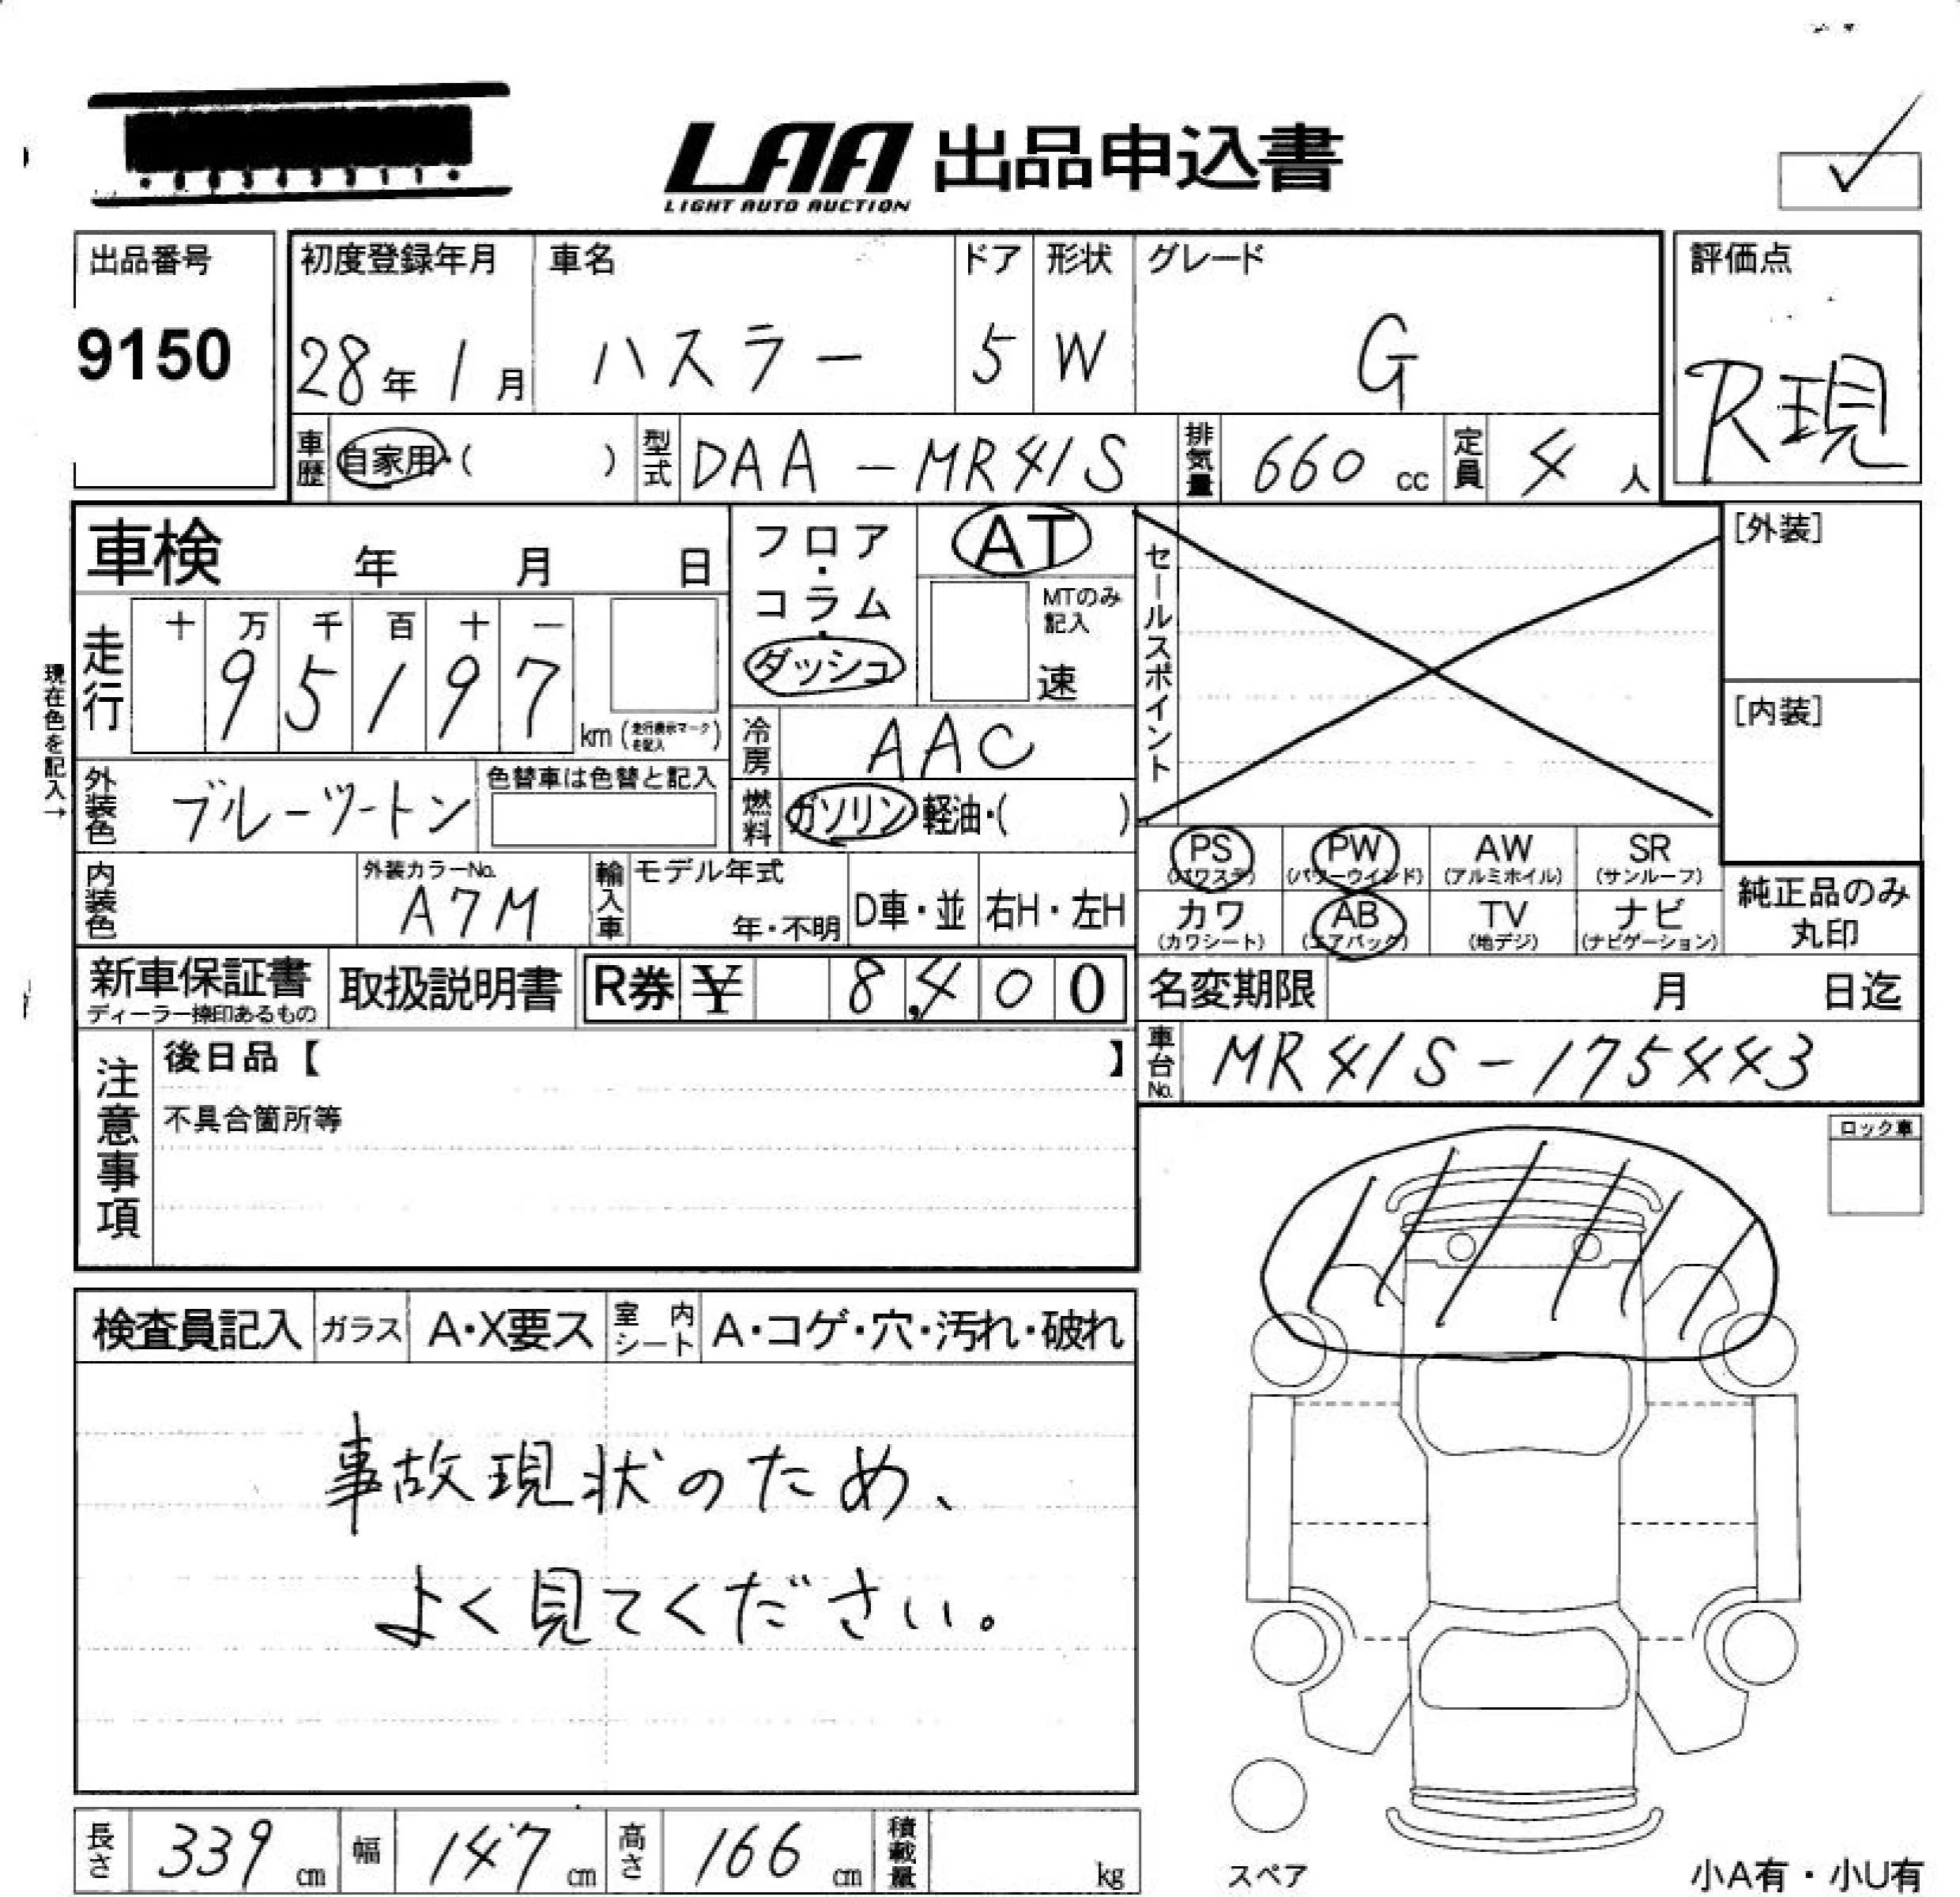 LAA 出品申込書
LIGHT AUTO AUCTION
出品番号
9150
初度登録年月
28年1月
車名
ハスラー
ドア
5
形状
W
グレード
G
評価点
R現
車歴 自家用・( )
型式 DAA-MR41S
排気量 660 cc
定員 4 人
車検 年 月 日
フロア・コラム・ダッシュ
AT
MTのみ記入
速
セールスポイント
[外装]
[内装]
現在色を記入→
走行 十 万 千 百 十 一
95197
km (走行表示マークを記入)
冷房 AAC
外装色 ブルーツートン
色替車は色替と記入
燃料 ガソリン 軽油・( )
内装色
外装カラーNo.
A7M
輸入車
モデル年式
年・不明
D車・並
右H・左H
PS (パワステ)
PW (パワーウインド)
AW (アルミホイル)
SR (サンルーフ)
カワ (カワシート)
AB (エアバッグ)
TV (地デジ)
ナビ (ナビゲーション)
純正品のみ
丸印
新車保証書
ディーラー捺印あるもの
取扱説明書
R券 ¥ 8,400
名変期限 月 日迄
車台No. MR41S-175443
注意事項
後日品【 】
不具合箇所等
ロック車
検査員記入
ガラス A・X要ス
室内シート A・コゲ・穴・汚れ・破れ
事故現状のため、
よく見てください。
長さ 339 cm
幅 147 cm
高さ 166 cm
積載量 kg
スペア
小A有・小U有